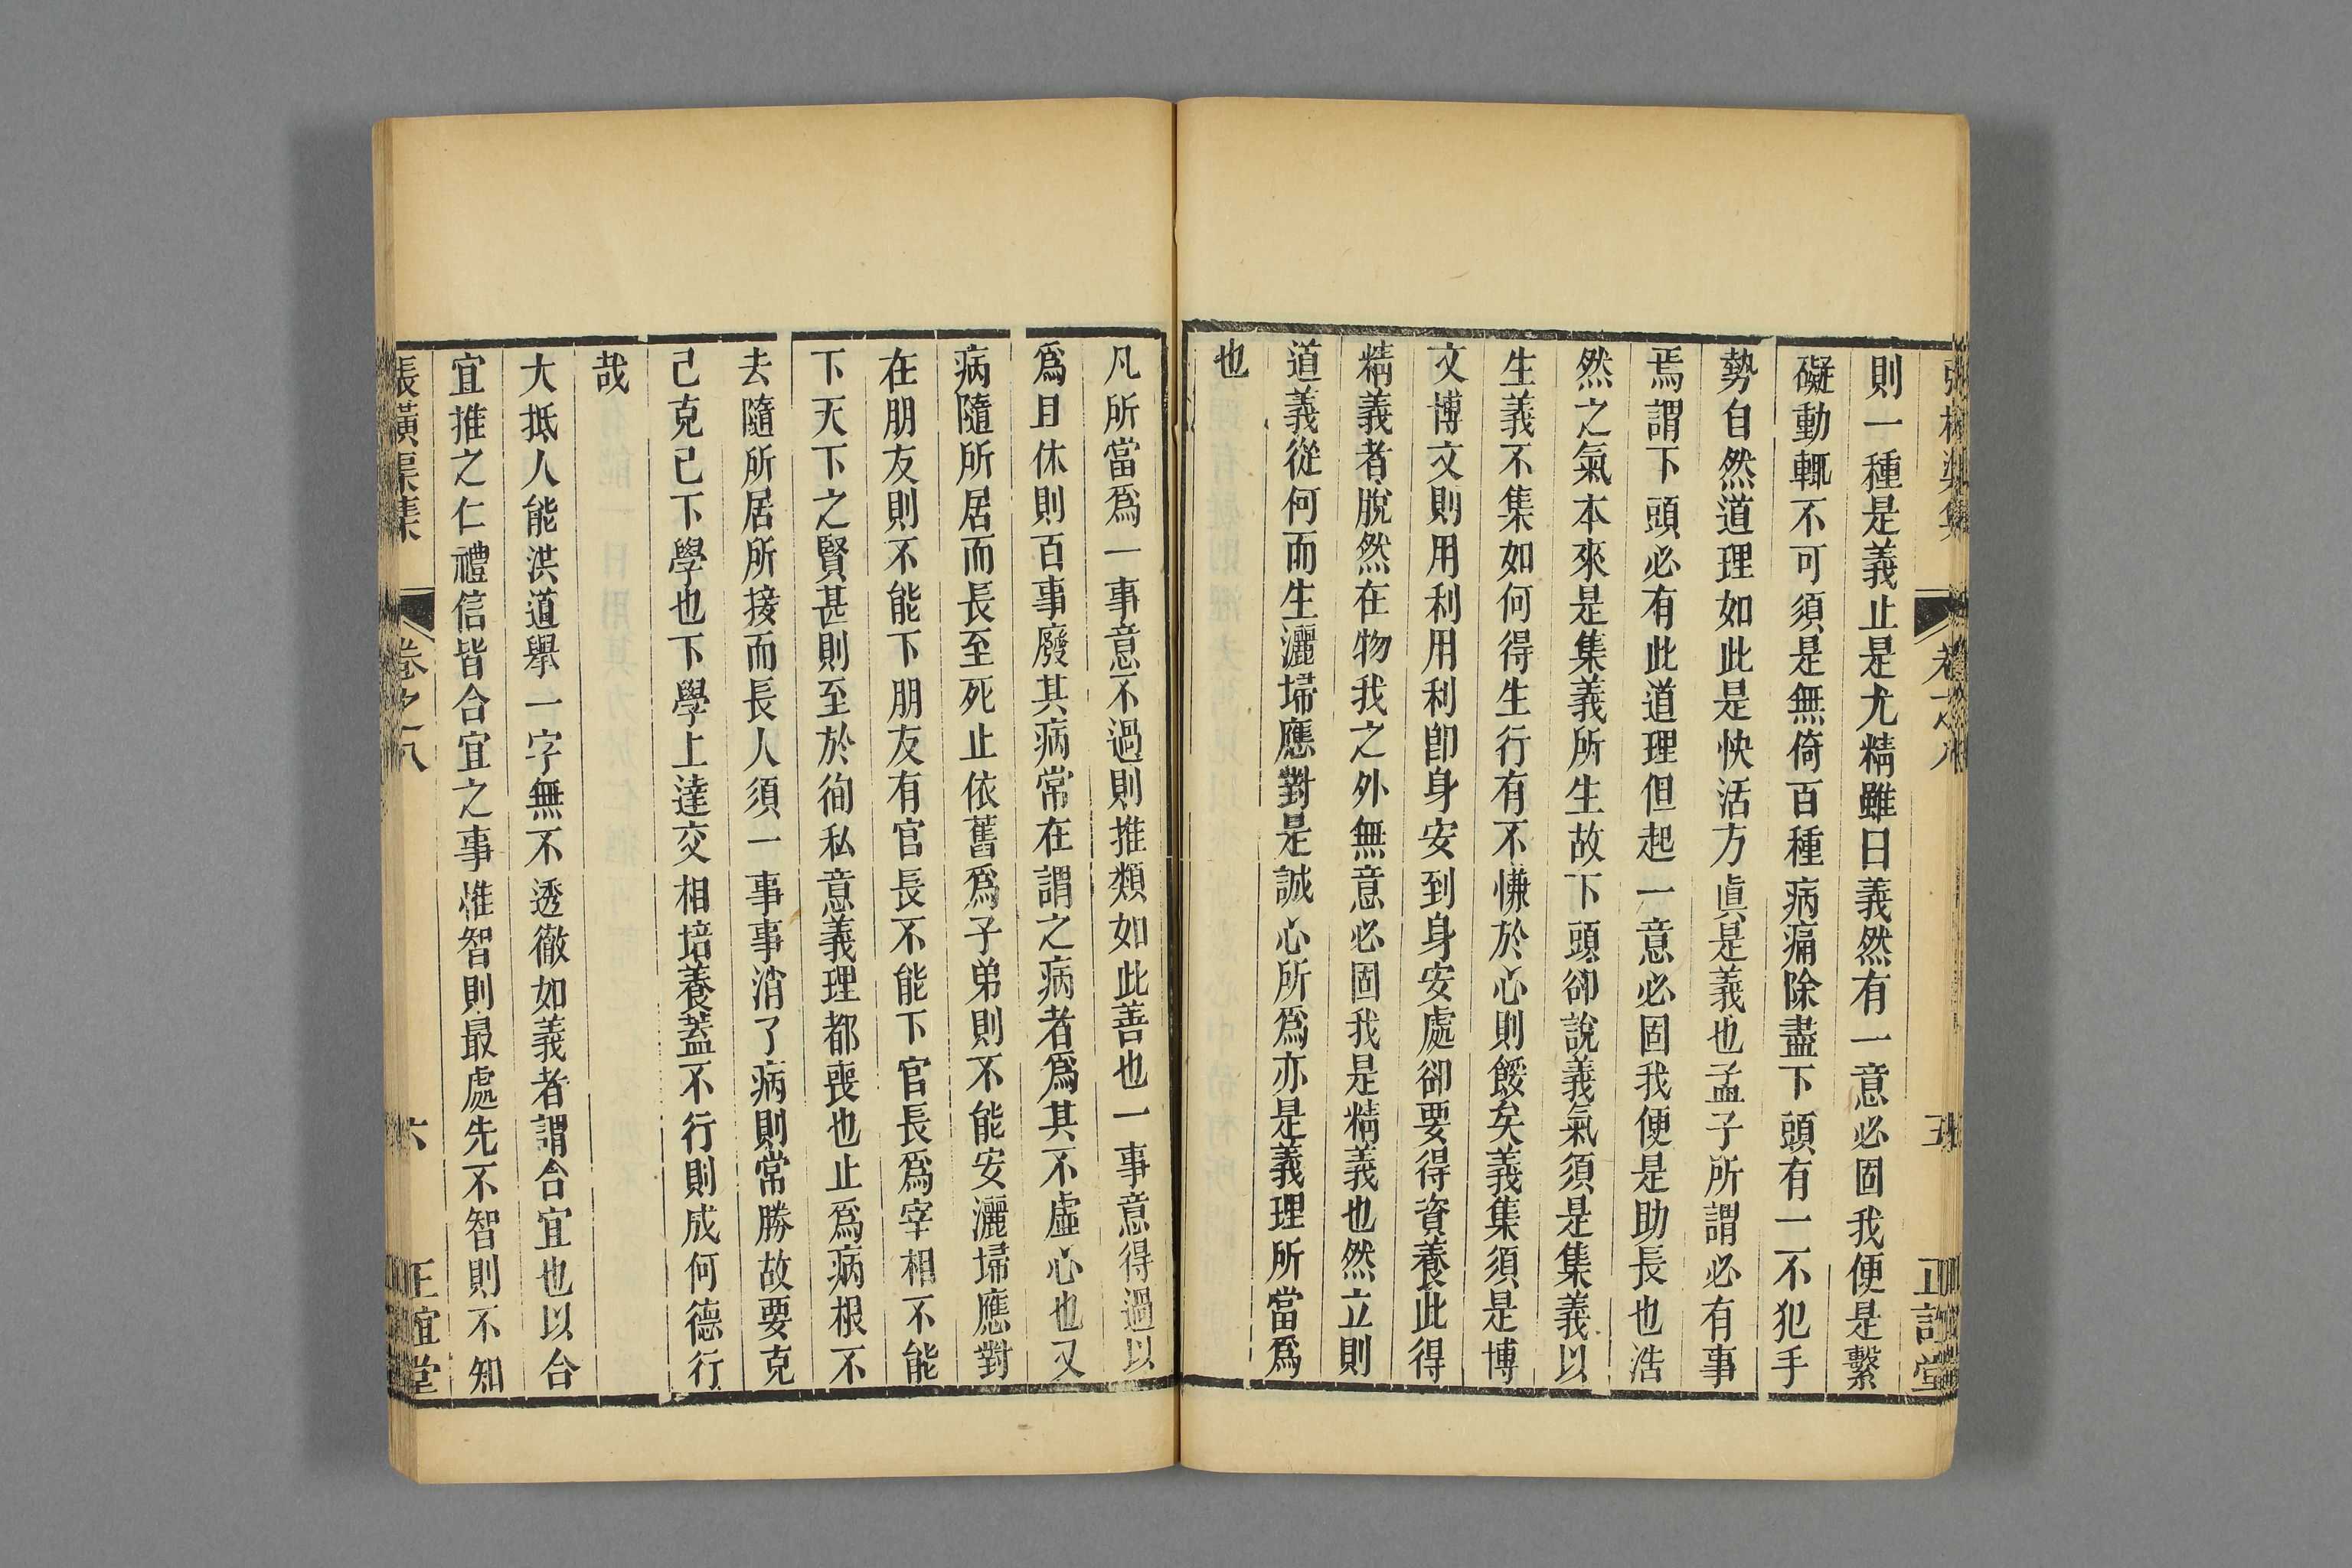 則一種是義止是尤精雖曰義然有一意必固我便是繫
礙動輒不可須是無倚百種病痛除盡下頭有一不犯手
勢自然道理如此是快活方眞是義也孟子所謂必有事
焉謂下頭必有此道理但起一意必固我便是助長也浩
然之氣本來是集義所生故下頭卻說義氣須是集義以
生義不集如何得生行有不慊於心則餒矣義集須是博
文博文則用利用利卽身安到身安處卻要得資養此得
精義者脫然在物我之外無意必固我是精義也然立則
道義從何而生灑埽應對是誠心所爲亦是義理所當爲
也
凡所當爲一事意不過則推類如此善也一事意得過以
爲且休則百事廢其病常在謂之病者爲其不虛心也又
病隨所居而長至死止依舊爲子弟則不能安灑埽應對
在朋友則不能下朋友有官長不能下官長爲宰相不能
下天下之賢甚則至於徇私意義理都喪也止爲病根不
去隨所居所接而長人須一事事消了病則常勝故要克
己克己下學也下學上達交相培養蓋不行則成何德行
哉
大抵人能洪道舉一字無不透徹如義者謂合宜也以合
宜推之仁禮信皆合宜之事惟智則最處先不智則不知
張橫渠集 卷之八 六 正誼堂